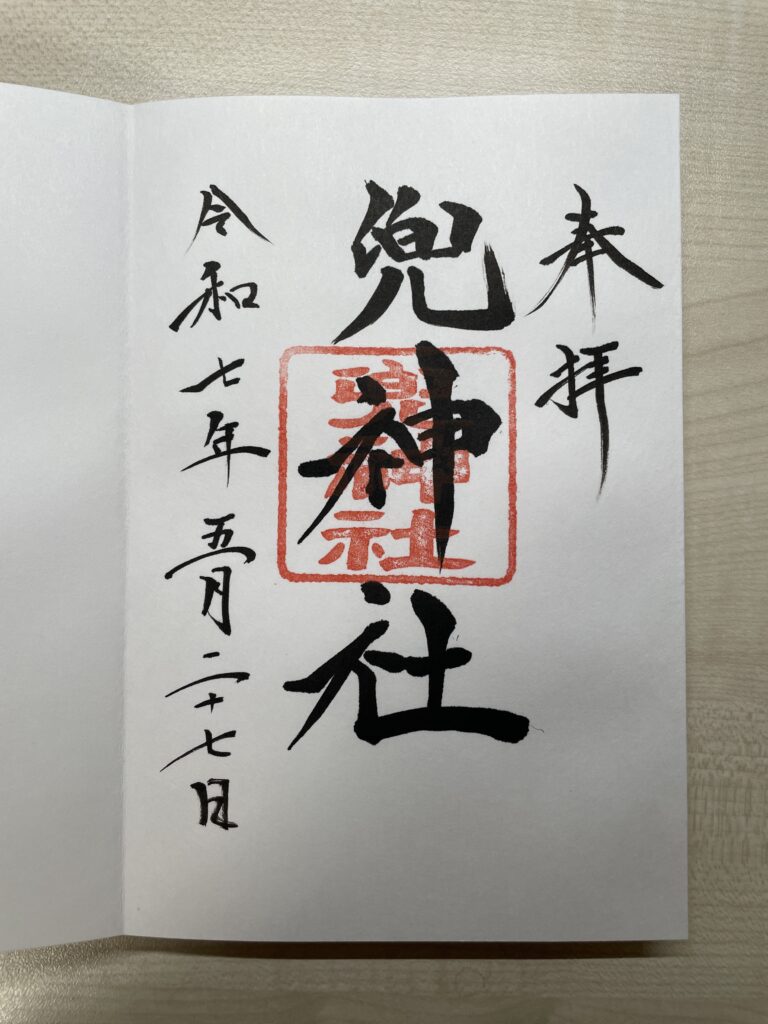 奉拝
兜神社
兜神社
令和七年五月二十七日